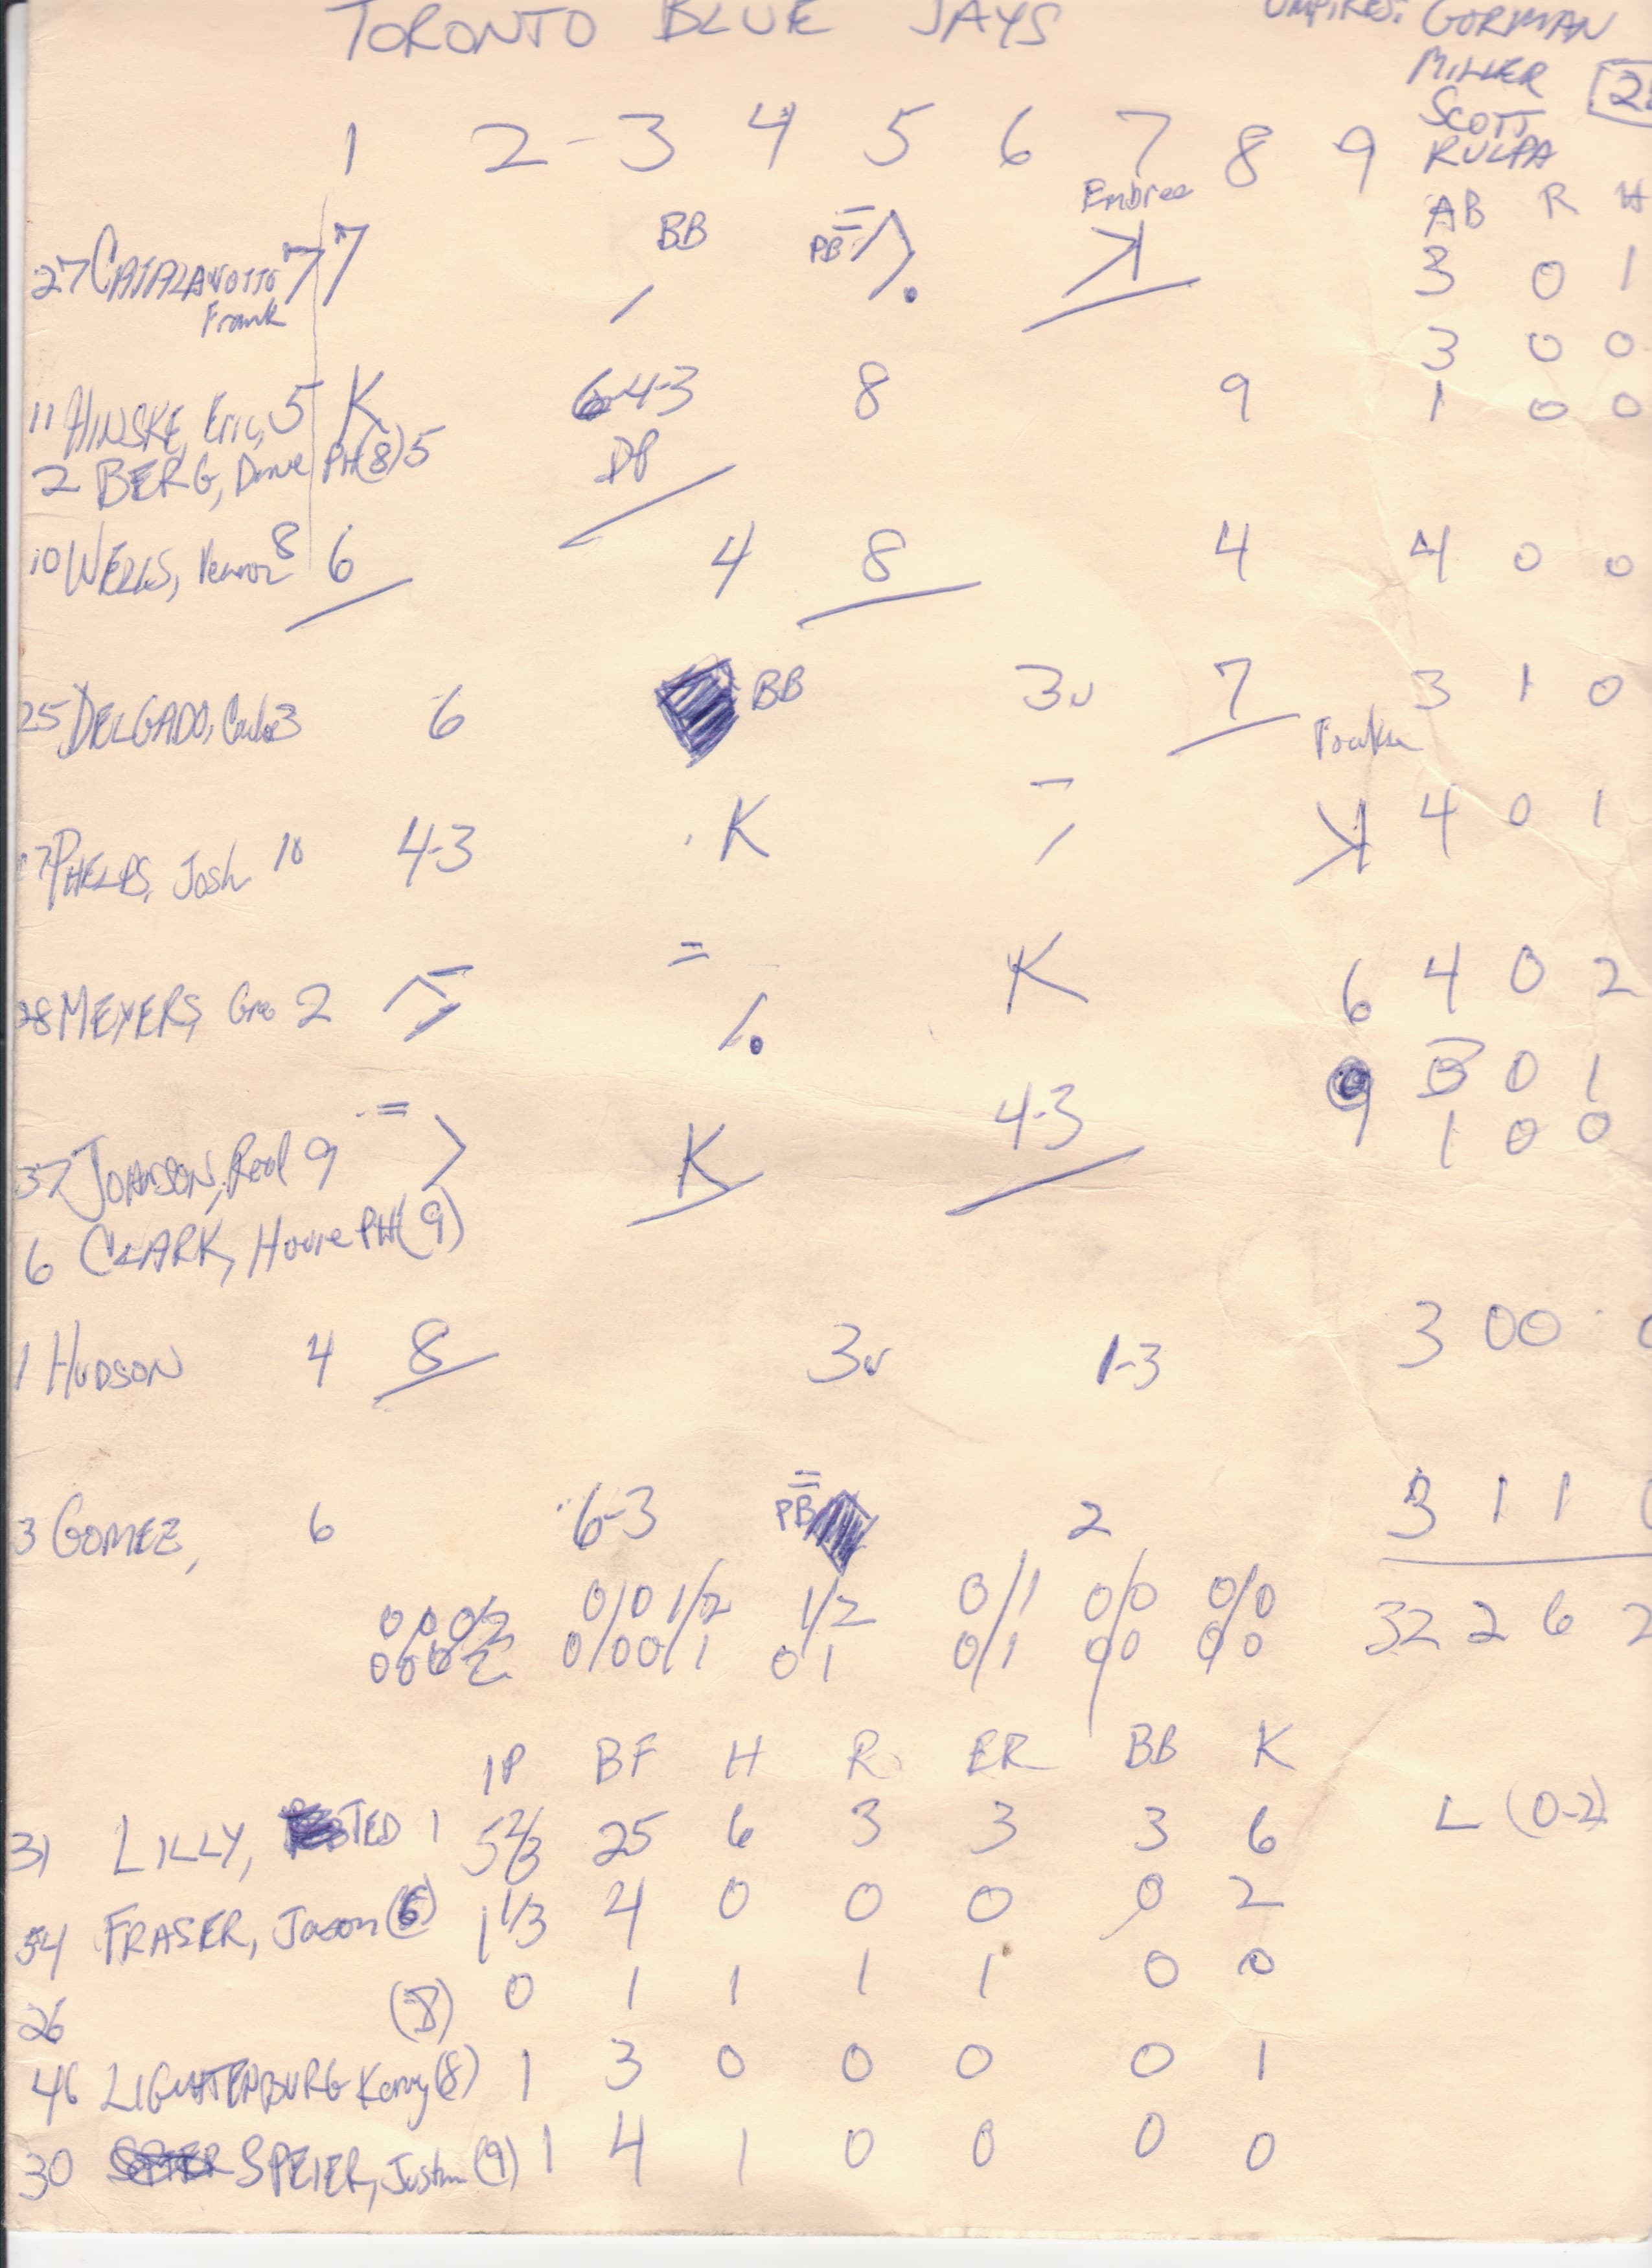 TORONTO BLUE JAYS UMPIRES: GORMAN
MILLER
SCOTT
KULPA
1 2 - 3 4 5 6 7 8 9
AB R H
Embree
27 CATALANOTTO 7 7 BB PB K 3 0 1
Frank
3 0 0
11 HINSKE, Eric, 5 K 6-4-3 8 9 1 0 0
2 BERG, Dave PH(8)5 DP
10 WELLS, Vernon 8 6 4 8 4 4 0 0
25 DELGADO, Carlos 3 6 BB 3u 7 3 1 0
Foulke
PHELPS, Josh 10 4-3 K K 4 0 1
28 MEYERS, Greg 2 K 6 4 0 2
3 0 1
37 JOHNSON, Reed 9 K 4-3 9 1 0 0
6 CLARK, Howie PH(9)
1 HUDSON 4 8 3u 1-3 3 0 0
3 GOMEZ, 6 6-3 PB 2 3 1 1
0/0 0/2 0/0 1/2 1/2 0/1 0/0 0/0 32 2 6 2
0/0 0/2 0/0 0/1 0 1 0/1 0/0 0/0
IP BF H R ER BB K
31 LILLY, TED 1 5 2/3 25 6 3 3 3 6 L (0-2)
54 FRASER, Jason (6) 1 1/3 4 0 0 0 0 2
26 (8) 0 1 1 1 1 0 0
46 LIGHTENBURG Kerry (8) 1 3 0 0 0 0 1
30 SPEIER, Justin (9) 1 4 1 0 0 0 0